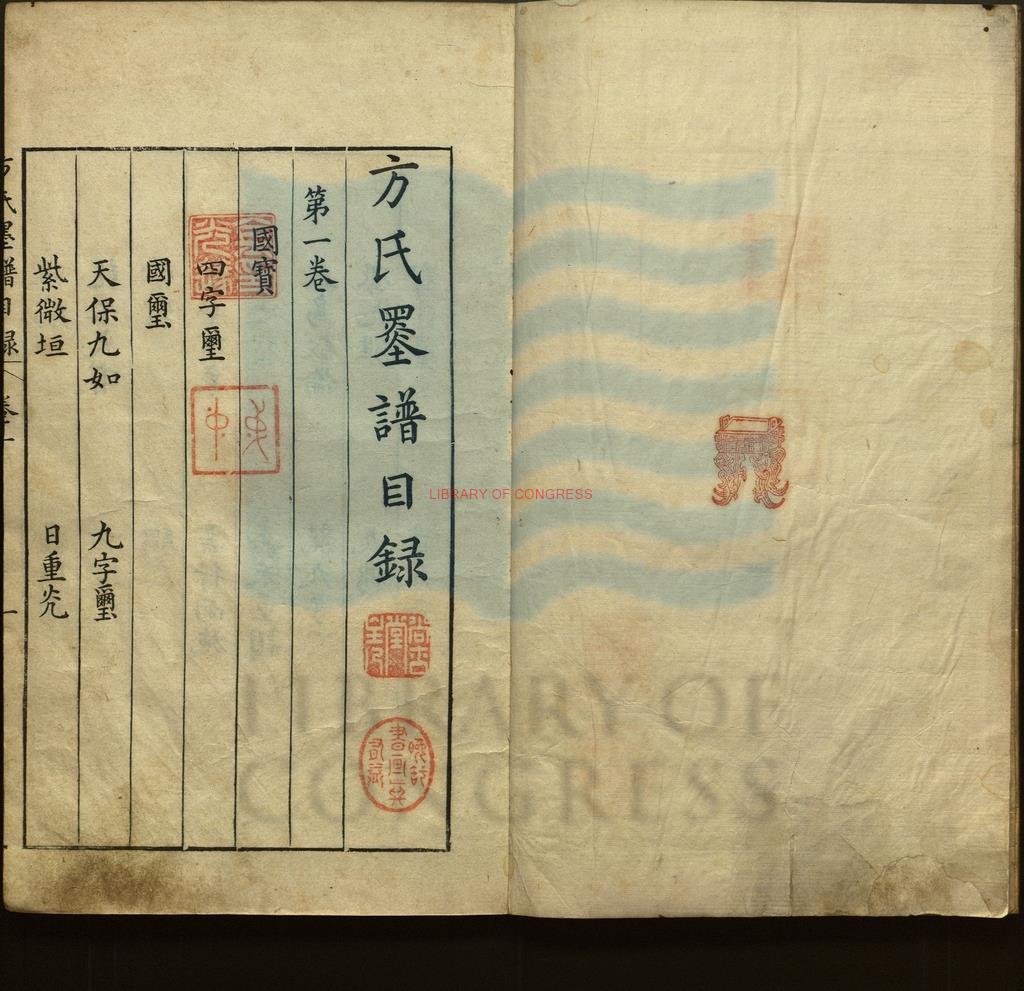 方氏墨譜目録
第一卷
國寶
四字璽
國璽
天保九如 九字璽
紫微垣 日重光
方氏墨譜目録 卷一 一
LIBRARY OF CONGRESS
LIBRARY OF
CONGRESS